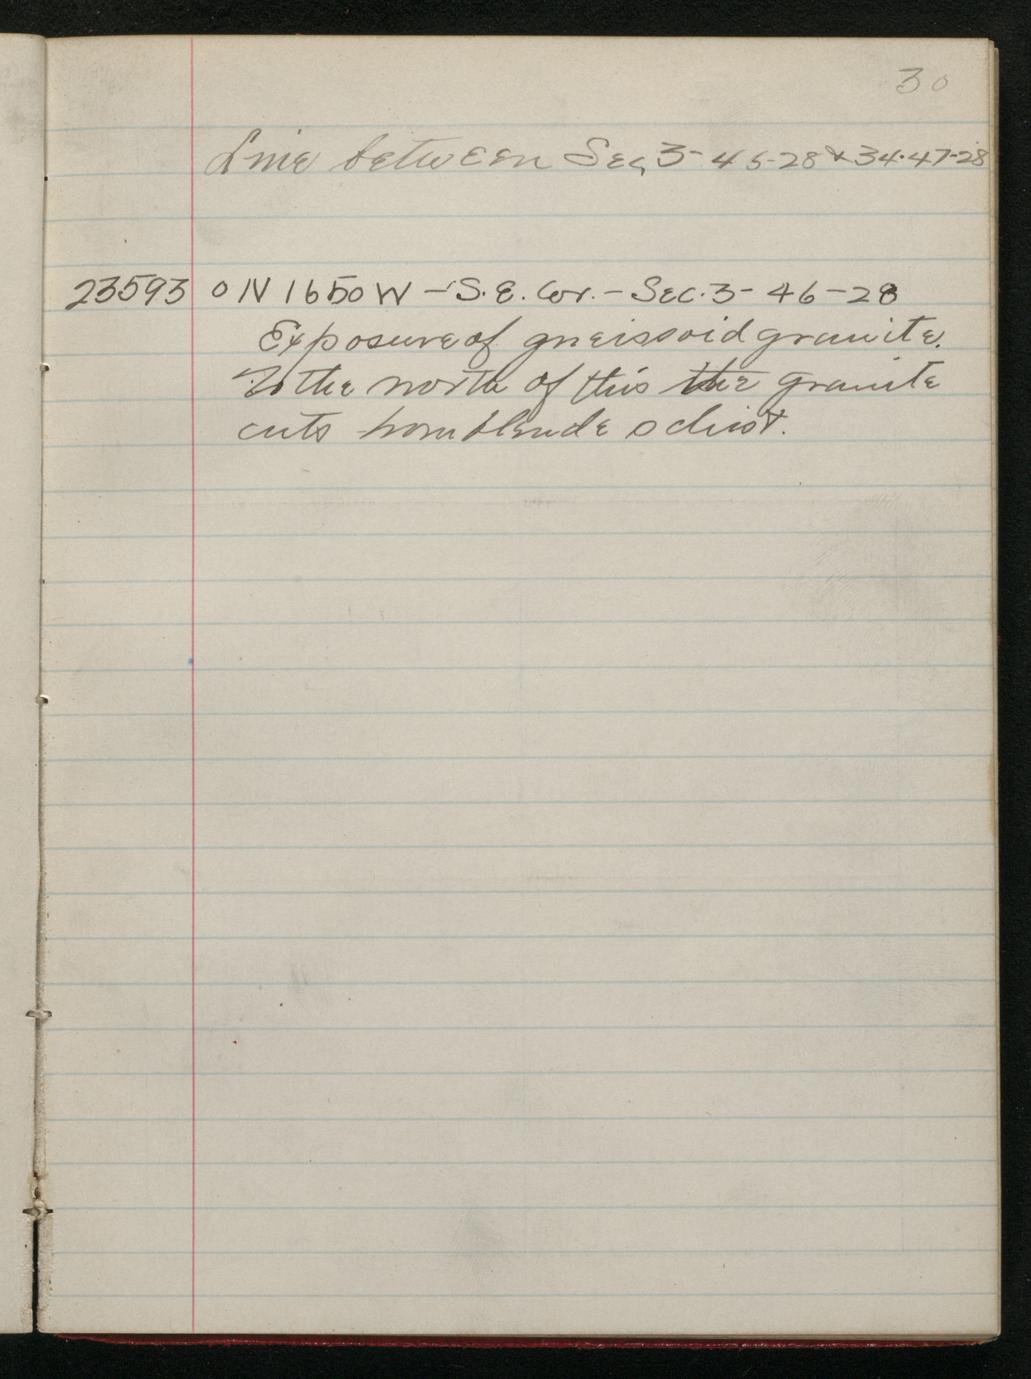 30
Line between Sec, 3-46-28 & 34-47-28
23593 0 N 1650 W - S.E. Cor. - Sec. 3 - 46 - 28
Exposure of gneissoid granite.
To the north of this the granite
cuts hornblende schist.